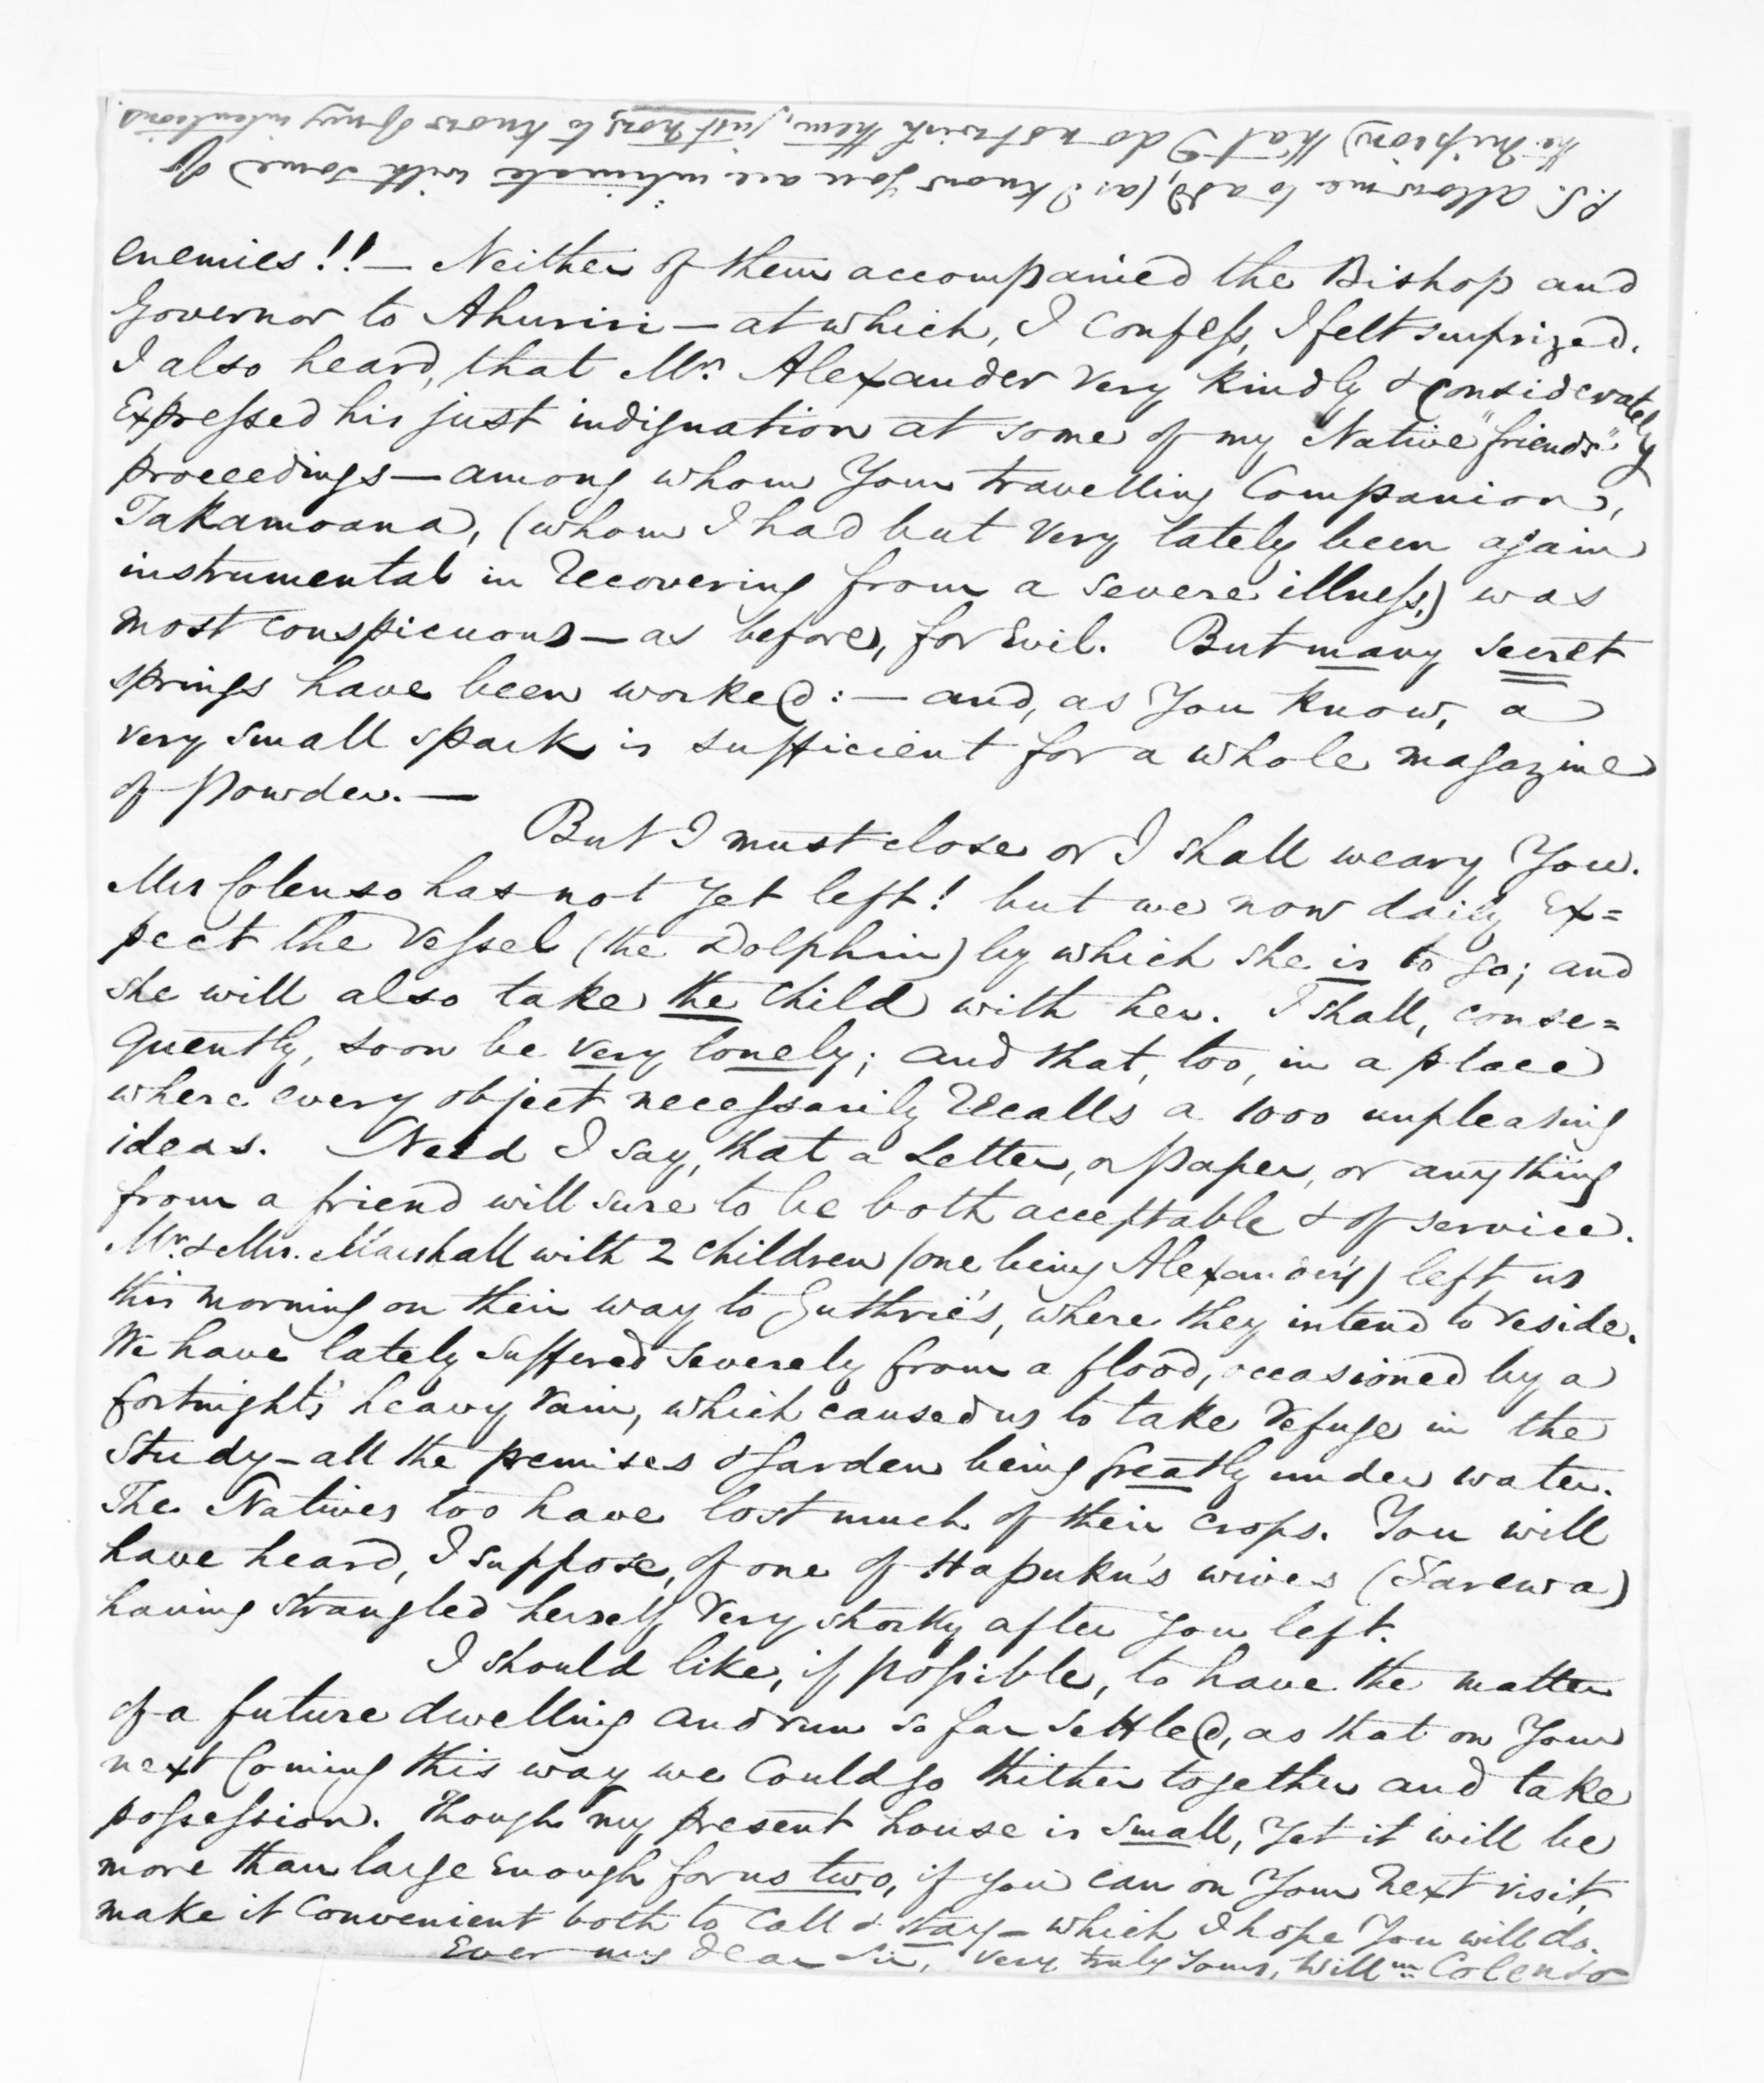 enemies!! — Neither of them accompanied the Bishop and
Governor to Ahuriri — at which, I confess, I felt surprized.
I also heard, that Mr. Alexander very kindly & considerately
expressed his just indignation at some of my Native "friends'"
proceedings — among whom Your travelling Companion,
Takamoana, (whom I had but very lately been again
instrumental in recovering from a severe illness,) was
most conspicuous — as before, for Evil. But many secret
springs have been worked: — and, as You know, a
very small spark is sufficient for a whole magazine
of powder. —
But I must close or I shall weary You.
Mrs Colenso has not yet left! but we now daily ex=
pect the Vessel (the Dolphin) by which she is to go; and
she will also take the child with her. I shall, conse=
quently, soon be very lonely; and that, too, in a place
where every object necessarily recalls a 1000 unpleasing
ideas. Need I say, that a Letter, or paper, or any thing
from a friend will sure to be both acceptable & of service.
Mr. & Mrs. Marshall with 2 children (one being Alexander's) left us
this morning on their way to Guthrie's, where they intend to reside.
We have lately suffered severely from a flood, occasioned by a
fortnight's heavy rain, which caused us to take refuge in the
Study — all the premises & garden being greatly under water.
The Natives too have lost much of their crops. You will
have heard, I suppose, of one of Hapuku's wives (Tarewa)
having strangled herself very shortly after you left.
I should like, if possible, to have the matter
of a future dwelling and run so far settled, as that on Your
next Coming this way we could go thither together and take
possession. Though my present house is small, yet it will be
more than large enough for us two, if you can on Your next visit,
make it convenient both to call & stay — which I hope You will do.
Ever my dear Sir, very truly yours, Willm. Colenso
P.S. allow me to add, (as I know You are intimate with some of
the Mission) that I do not wish them, just now, to know of my intentions.